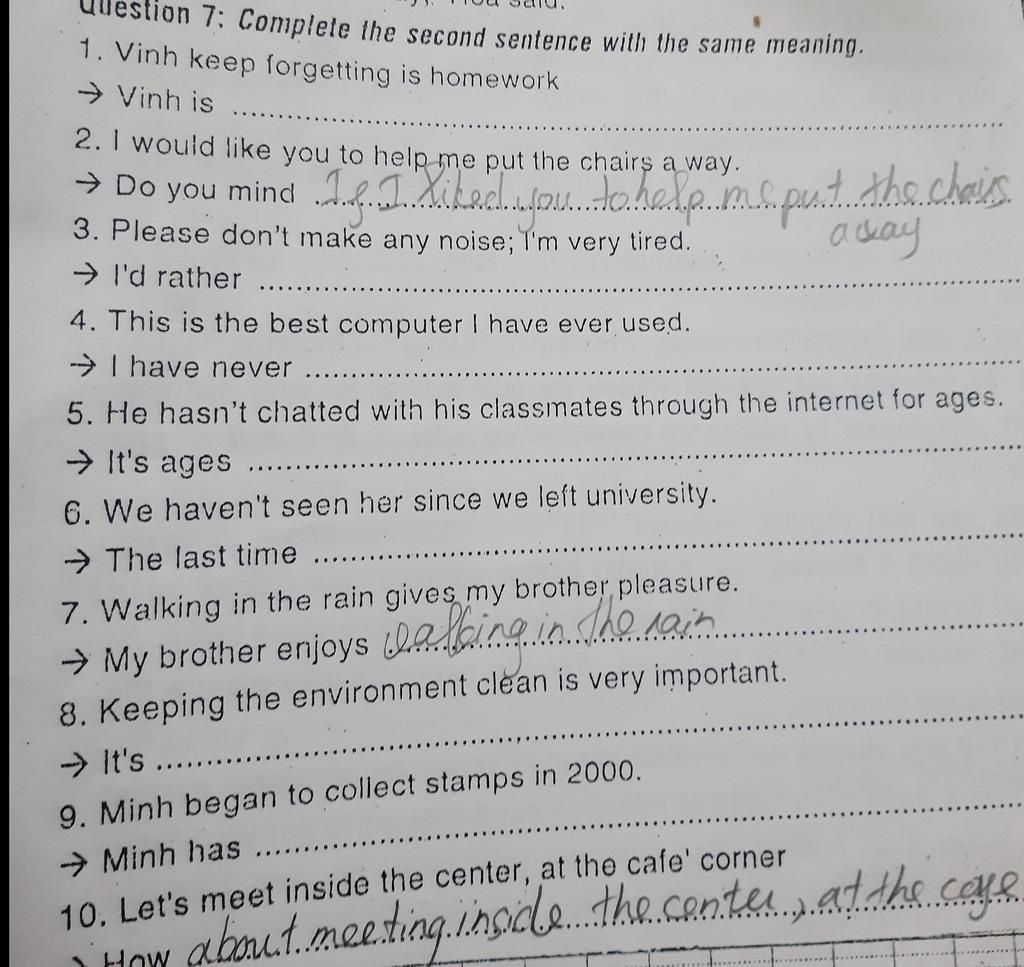 said.
Question 7: Complete the second sentence with the same meaning.
1. Vinh keep forgetting is homework
→ Vinh is ..........
2. I would like you to help me put the chairs a way.
→ Do you mind If I liked you to help me put the chairs
away
3. Please don't make any noise; I'm very tired.
→ I'd rather ..........
4. This is the best computer I have ever used.
→ I have never ..........
5. He hasn't chatted with his classmates through the internet for ages.
→ It's ages ..........
6. We haven't seen her since we left university.
→ The last time ..........
7. Walking in the rain gives my brother pleasure.
→ My brother enjoys walking in the rain ..........
8. Keeping the environment clean is very important.
→ It's ..........
9. Minh began to collect stamps in 2000.
→ Minh has ..........
10. Let's meet inside the center, at the cafe' corner
How about meeting inside the center, at the cafe